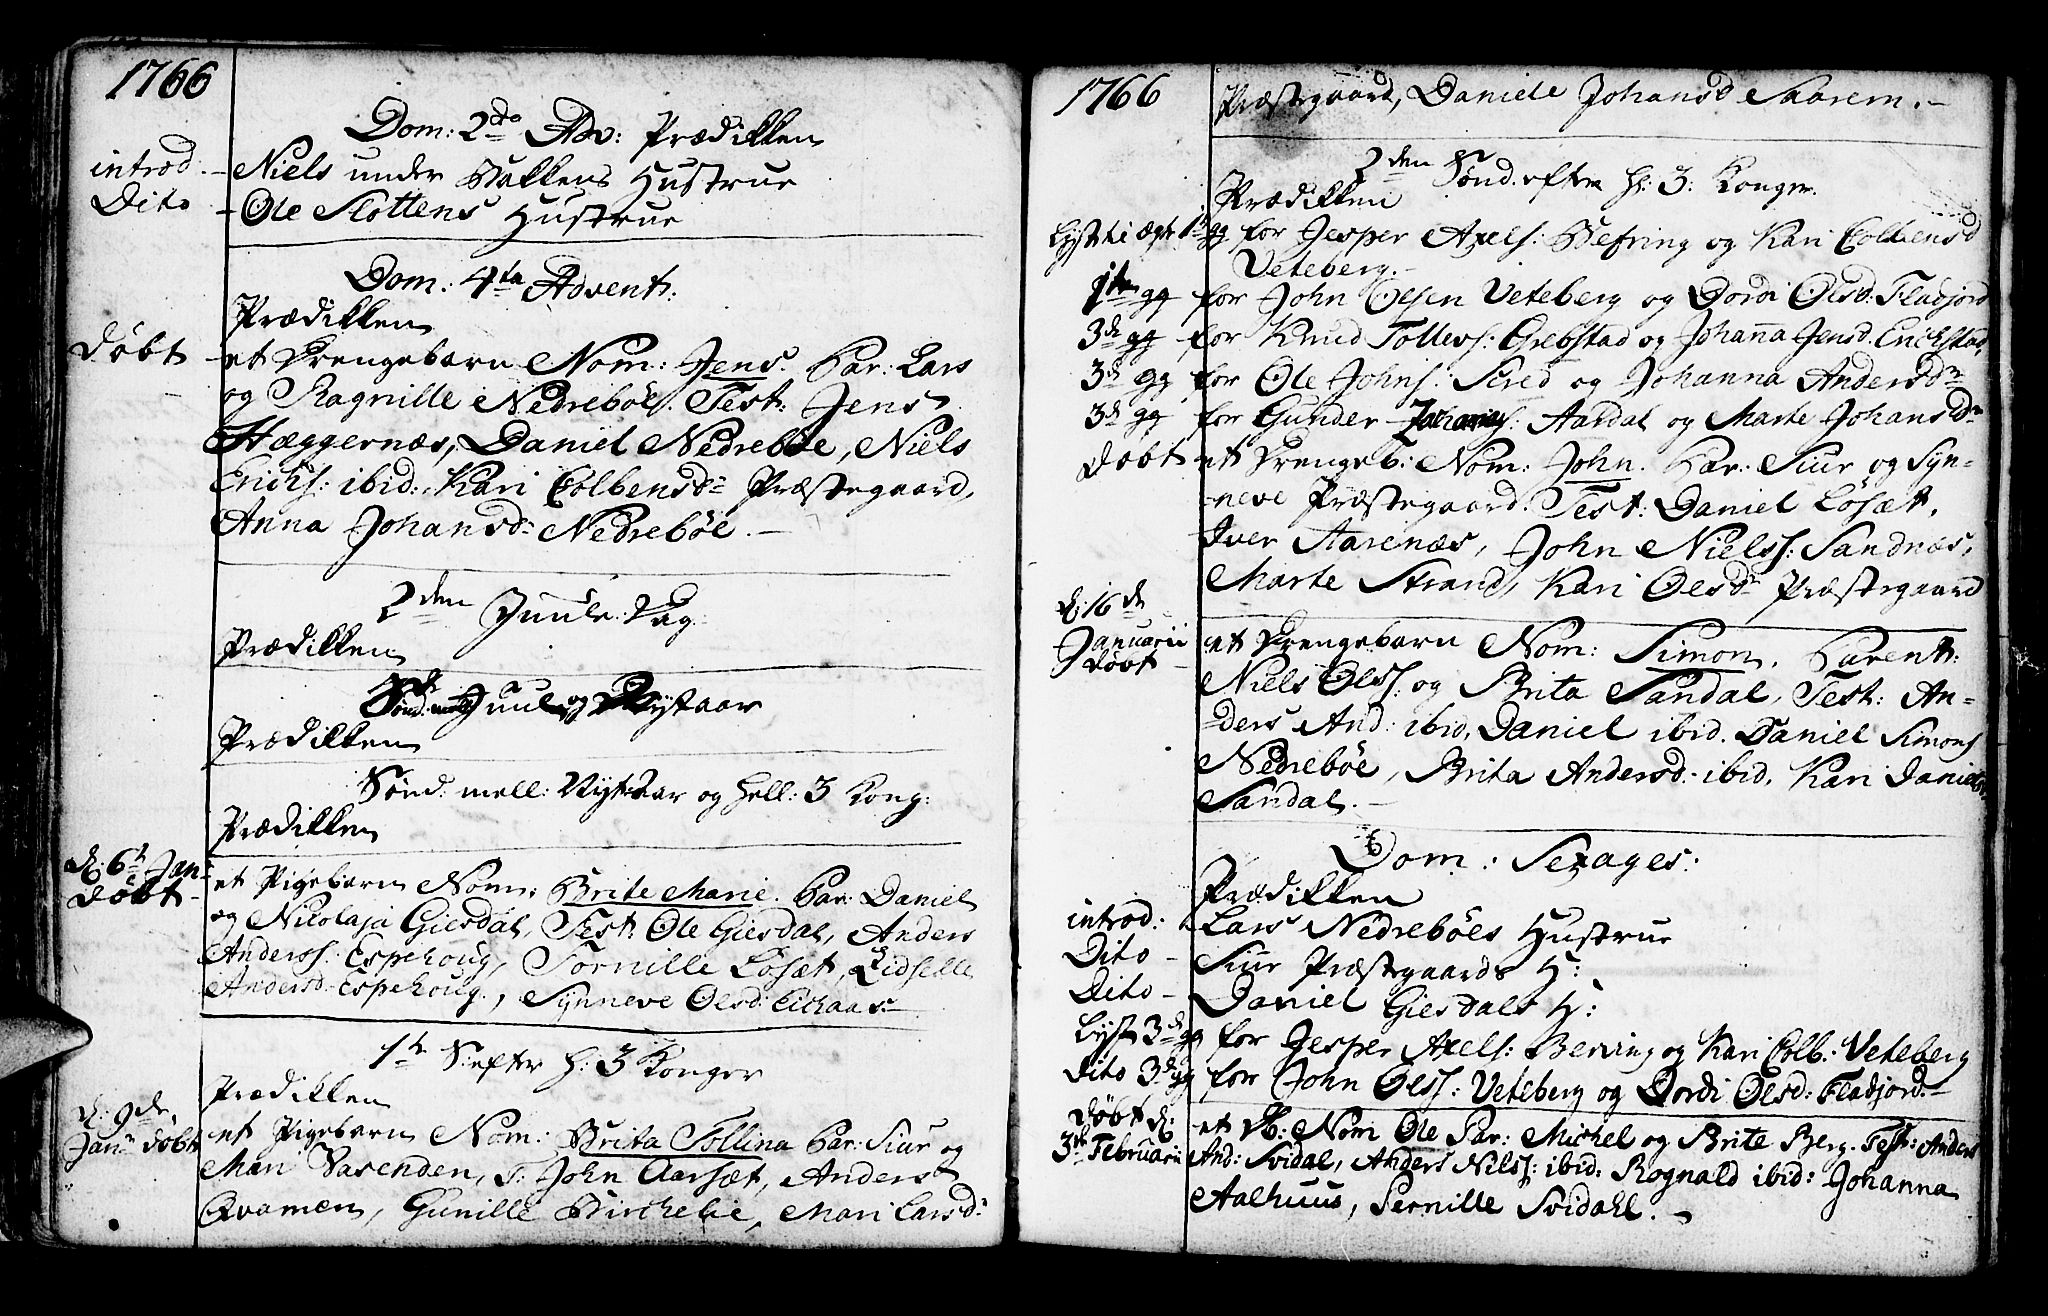 1766
Dom: 2do Adv: Prædikken
introd: Niels under Bakkens Hustrue
Dito - Ole Slottens Hustrue
Dom: 4ta Advent:
Prædikken
døbt - et Drengebarn Nom: Jens. Par: Lars
og Ragnille Nedrebøe. Test: Jens
Hæggernæs, Daniel Nedrebøe, Niels
Erichs: ibid:, Kari Colbensd: Præstegaard,
Anna Johansd: Nedrebøe. -
2den Juule-Dag.
Prædikken
Sønd: mell: Juul og Nytaar
Prædikken
Sønd: mell: Nyt-Aar og Hell: 3 Kong:
Prædikken
d: 6te Jan: døbt - et Pigebarn Nom: Brite Marie. Par: Daniel
og Nikolaja Giesdal, Test: Ole Giesdal, Anders
Anderss: Espehoug, Tornille Løsæt, Lidselle
Andersd: Espehoug, Synneve Olsd: Eichaas. -
1te S: efter H: 3 Konger
Prædikken
d: 9de Janu: døbt et Pigebarn Nom: Brita Tollina Par: Siur og
Mari Vasenden, T: John Aarsæt, Anders
Qvamen, Gunille Birchelie, Mari Larsd:
1766
Præstegaard, Daniele Johansd Saarem. -
2den Sønd. efter H: 3: Konger.
Prædikken
Lyst til ægt 1te gg for Jesper Axels: Befring og Kari Colbensd
Veteberg. -
1te gg for John Olsen Veteberg og Dordi Olsd: Fladjord
3de gg for Knud Tollevs: Grebstad og Johanna Jensd. Erichstad,
3de gg for Ole Johns: Scred og Johanna Andersdr
3de gg for Gunder Zacharias: Aardal og Marte Johansdr
døbt et Drengeb: Nom: John. Par: Siur og Syn-
neve Præstegaard. Test: Daniel Løsæt,
Iver Aarenæs, John Nielss: Sandnæs,
Marte Strand, Kari Olsdr Præstegaard
d: 16de Januarii døbt - et Drengebarn Nom: Simon. Parent:
Niels Olss: og Brita Sandal, Test: An-
ders And: ibid, Daniel ibid. Daniel Simons
Nedrebøe, Brita Andersd: ibid, Kari Daniels
Sandal. -
Dom: Sexages:
Prædikken
introd: Lars Nedrebøes Hustrue
Dito - Siur Præstegaards H:
Dito - Daniel Giesdals H:
Lyst 3de gg for Jesper Axels: Berving og Kari Colb: Veteberg
Dito 3de gg for John Olss: Veteberg og Dordi Olsd: Fladjord. -
Døbt d: 3die Februarii et Db: Nom Ole Par: Michel og Brite Berg. Test: Anders
And: Svidal, Anders Nilss: ibid: Rognald ibid: Johanna
Aalhuus, Pernille Svidahl. -